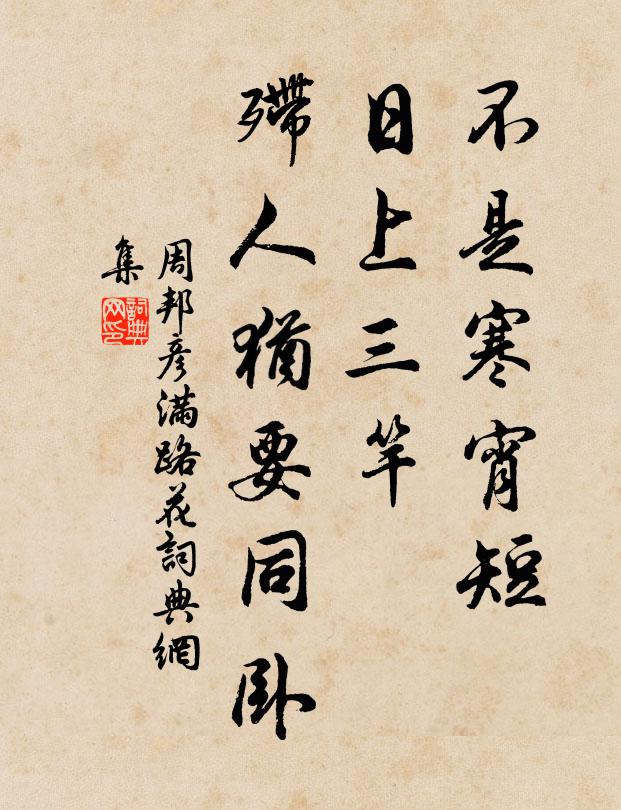 不是寒宵短
日上三竿
殢人猶要同卧
周邦彦滿路花詞典網
集
詞典网印